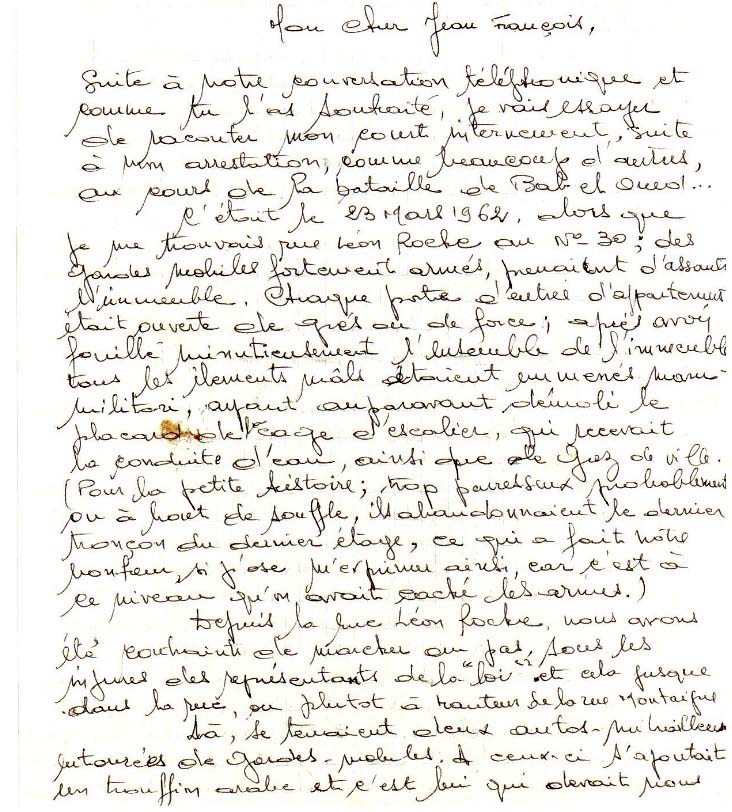 Mon cher Jean François,
Suite à notre conversation téléphonique et
comme tu l'as souhaité, je vais essayer
de raconter mon court internement, suite
à mon arrestation, comme beaucoup d'autres,
au cours de la bataille de Bab el Oued...
C'était le 23 Mars 1962, alors que
je me trouvais rue Léon Roche au N° 30; des
gardes mobiles fortement armés, prenaient d'assaut
l'immeuble. Chaque porte d'entrée d'appartement
était ouverte de grés ou de force; après avoir
fouillé minutieusement l'ensemble de l'immeuble
tous les éléments mâles étaient emmenés manu-
militari, ayant auparavant démoli le
placard de l'cage d'escalier, qui recevait
la conduite d'eau, ainsi que de Gaz de ville.
(Pour la petite histoire; trop paresseux probablement
ou à bout de souffle, ils abandonnaient le dernier
tronçon du dernier étage, ce qui a fait notre
bonheur, si j'ose m'exprimer ainsi, car c'est à
ce niveau qu'on avait caché les armes.)
Depuis la rue Léon Roche, nous avons
été contraints de marcher au pas, sous les
injures des représentants de la "loi" et cela jusque
dans la rue, ou plutôt à hauteur de la rue Montaigne
Là, se tenaient deux autos-mitrailleuses
entourées de gardes-mobiles. A ceux-ci s'ajoutait
un trouffin arabe et c'est lui qui devait nous